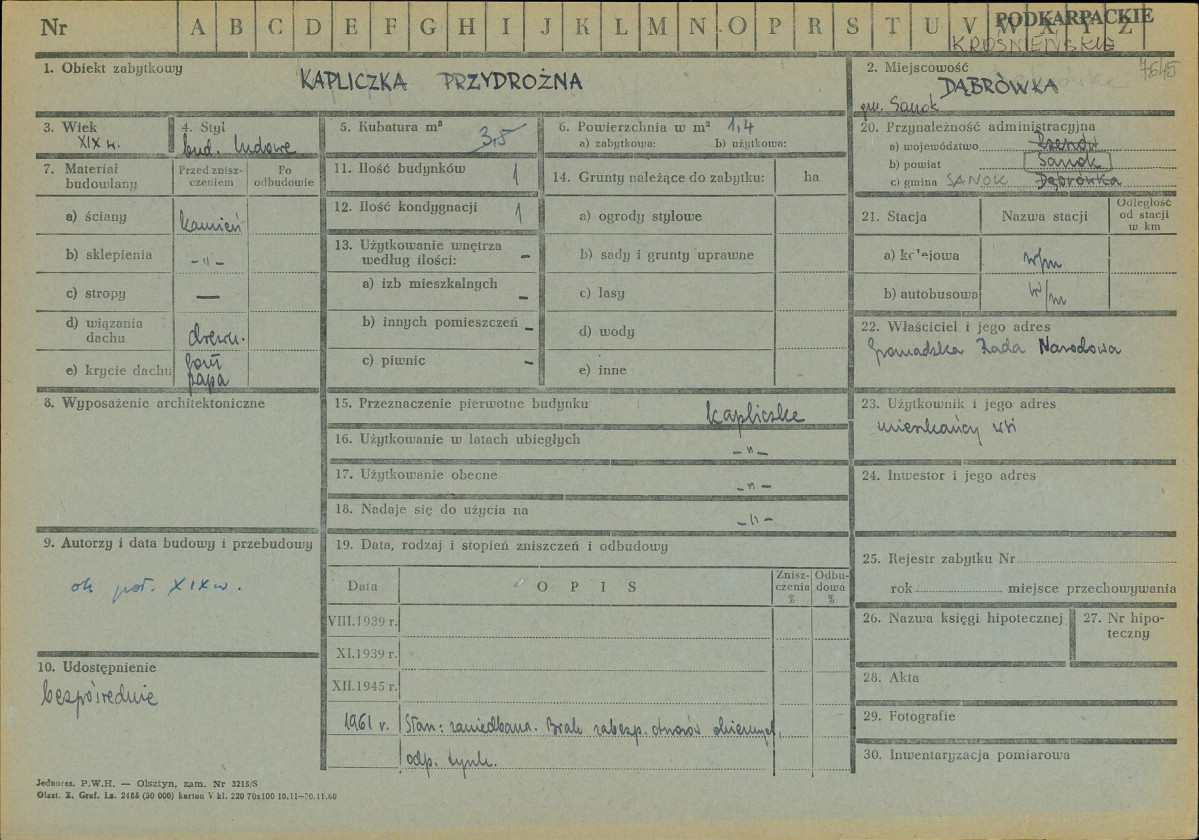 Nr A B C D E F G H I J K L M N O P R S T U V W X Y Z PODKARPACKIE
KROŚNIEŃSKIE
7645
1. Obiekt zabytkowy
KAPLICZKA PRZYDROŻNA
2. Miejscowość
DĄBRÓWKA
gm. Sanok
3. Wiek
XIX w.
4. Styl
bud. ludowe
5. Kubatura m³
3,5
6. Powierzchnia w m² 1,4
a) zabytkowa: b) użytkowa:
7. Materiał budowlany
Przed znisz-
czeniem
Po
odbudowie
a) ściany kamień
b) sklepienia -„-
c) stropy —
d) wiązania
dachu drewn.
e) krycie dachu gont
papa
8. Wyposażenie architektoniczne
9. Autorzy i data budowy i przebudowy
ok poł. XIX w.
10. Udostępnienie
bezpośrednie
11. Ilość budynków 1
12. Ilość kondygnacji 1
13. Użytkowanie wnętrza
według ilości: –
a) izb mieszkalnych –
b) innych pomieszczeń –
c) piwnic –
14. Grunty należące do zabytku: ha
a) ogrody stylowe
b) sady i grunty uprawne
c) lasy
d) wody
e) inne
15. Przeznaczenie pierwotne budynku kapliczka
16. Użytkowanie w latach ubiegłych -„-
17. Użytkowanie obecne -„-
18. Nadaje się do użycia na -„-
19. Data, rodzaj i stopień zniszczeń i odbudowy
Data O P I S Znisz-
czenia
% Odbu-
dowa
%
VIII.1939 r.
XI.1939 r.
XII.1945 r.
1961 r. Stan: zaniedbana. Brak zabezp. otworów okiennych,
odp. tynk.
20. Przynależność administracyjna
a) województwo Rzeszów
b) powiat Sanok
c) gmina SANOK Dąbrówka
21. Stacja Nazwa stacji Odległość
od stacji
w km
a) kolejowa w/m
b) autobusowa w/m
22. Właściciel i jego adres
Gromadzka Rada Narodowa
23. Użytkownik i jego adres
mieszkańcy wsi
24. Inwestor i jego adres
25. Rejestr zabytku Nr
rok miejsce przechowywania
26. Nazwa księgi hipotecznej
27. Nr hipo-
teczny
28. Akta
29. Fotografie
30. Inwentaryzacja pomiarowa
Jednorаz. P.W.H. — Olsztyn, zam. Nr 3215/S
Olszt. Z. Graf. Lz. 2465 (30 000) karton V kl. 220 70x100 10.11—30.11.60